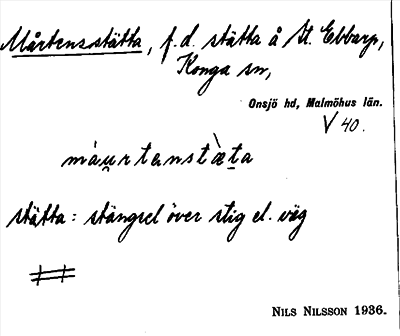 Mårtensstätta, f.d. stätta å St. Ebbarp,
Konga sn,
Onsjö hd, Malmöhus län.
V 40.
màu̯rtənstæ̀ta
stätta: stängsel över stig el. väg
NILS NILSSON 1936.